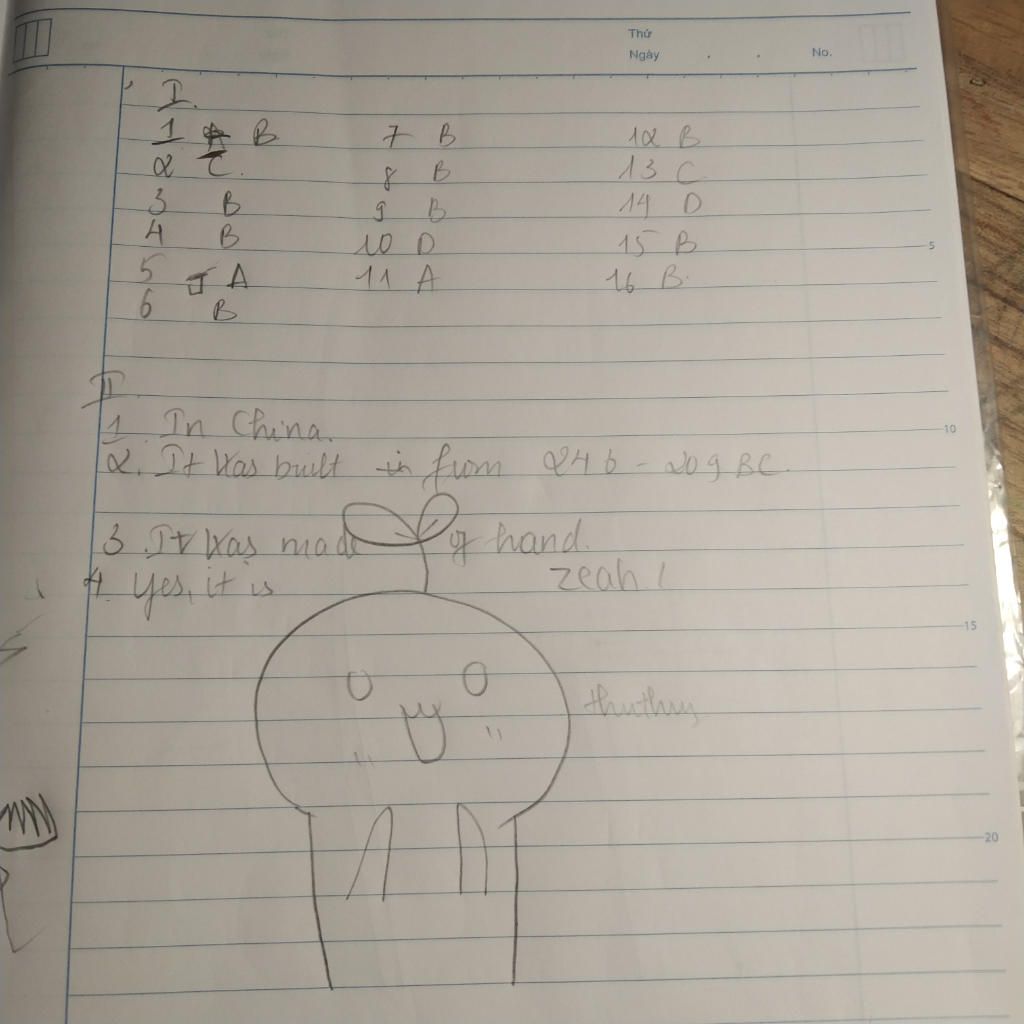 Thứ
Ngày . . No.
I.
1 A B 7 B 12 B
2 C. 8 B 13 C
3 B 9 B 14 D
4 B 10 D 15 B
5 A 11 A 16 B.
6 B
II
1. In China.
2. It was built in from 246 - 209 BC.
3. It was made by hand.
4. Yes, it is zeah!
thuthuy
5
10
15
20